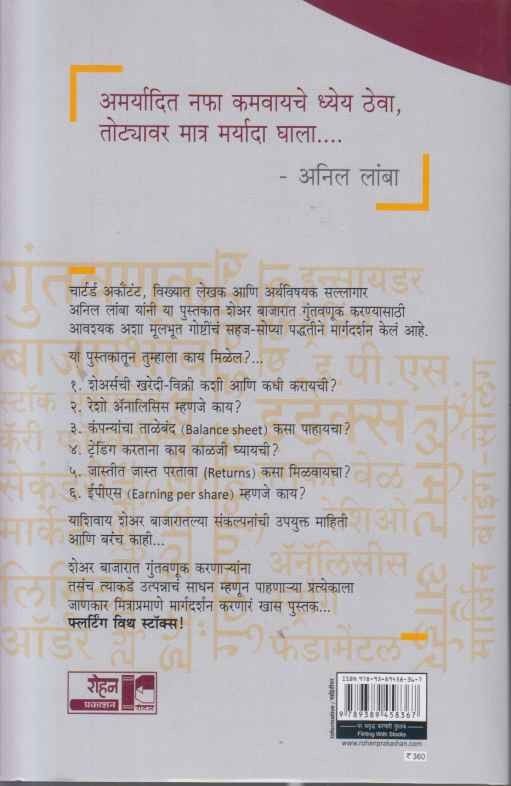 अमर्यादित नफा कमवायचे ध्येय ठेवा,
तोट्यावर मात्र मर्यादा घाला....
- अनिल लांबा
चार्टर्ड अकौंटंट, विख्यात लेखक आणि अर्थविषयक सल्लागार
अनिल लांबा यांनी या पुस्तकात शेअर बाजारात गुंतवणूक करण्यासाठी
आवश्यक अशा मूलभूत गोष्टींचं सहज-सोप्या पद्धतीने मार्गदर्शन केलं आहे.
या पुस्तकातून तुम्हाला काय मिळेल?...
१. शेअर्सची खरेदी-विक्री कशी आणि कधी करायची?
२. रेशो ॲनालिसिस म्हणजे काय?
३. कंपन्यांचा ताळेबंद (Balance sheet) कसा पाहायचा?
४. ट्रेडिंग करताना काय काळजी घ्यायची?
५. जास्तीत जास्त परतावा (Returns) कसा मिळवायचा?
६. ईपीएस (Earning per share) म्हणजे काय?
याशिवाय शेअर बाजारातल्या संकल्पनांची उपयुक्त माहिती
आणि बरंच काही...
शेअर बाजारात गुंतवणूक करणाऱ्यांना
तसंच त्याकडे उत्पन्नाचं साधन म्हणून पाहणाऱ्या प्रत्येकाला
जाणकार मित्राप्रमाणे मार्गदर्शन करणारं खास पुस्तक...
फ्लर्टिंग विथ स्टॉक्स!
रोहन
प्रकाशन
रोहन
Information / माहितीपर
ISBN 978-93-89458-36-7
9 789389 458367
Flirting With Stocks
www.rohanprakashan.com
₹ 360